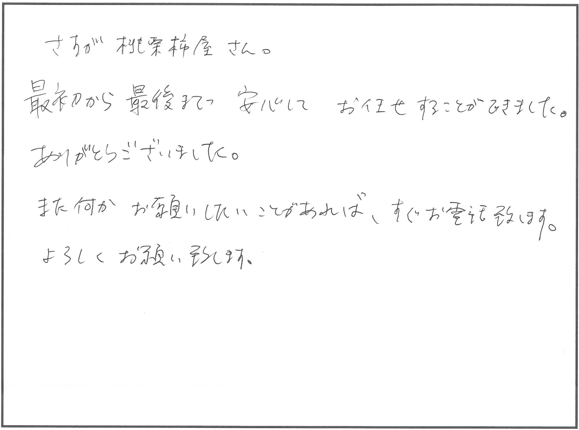 さすが桃栗柿屋さん。
最初から最後まで 安心して お任せすることができました。
ありがとうございました。
また何かお願いしたいことがあれば、すぐお電話致します。
よろしくお願い致します。